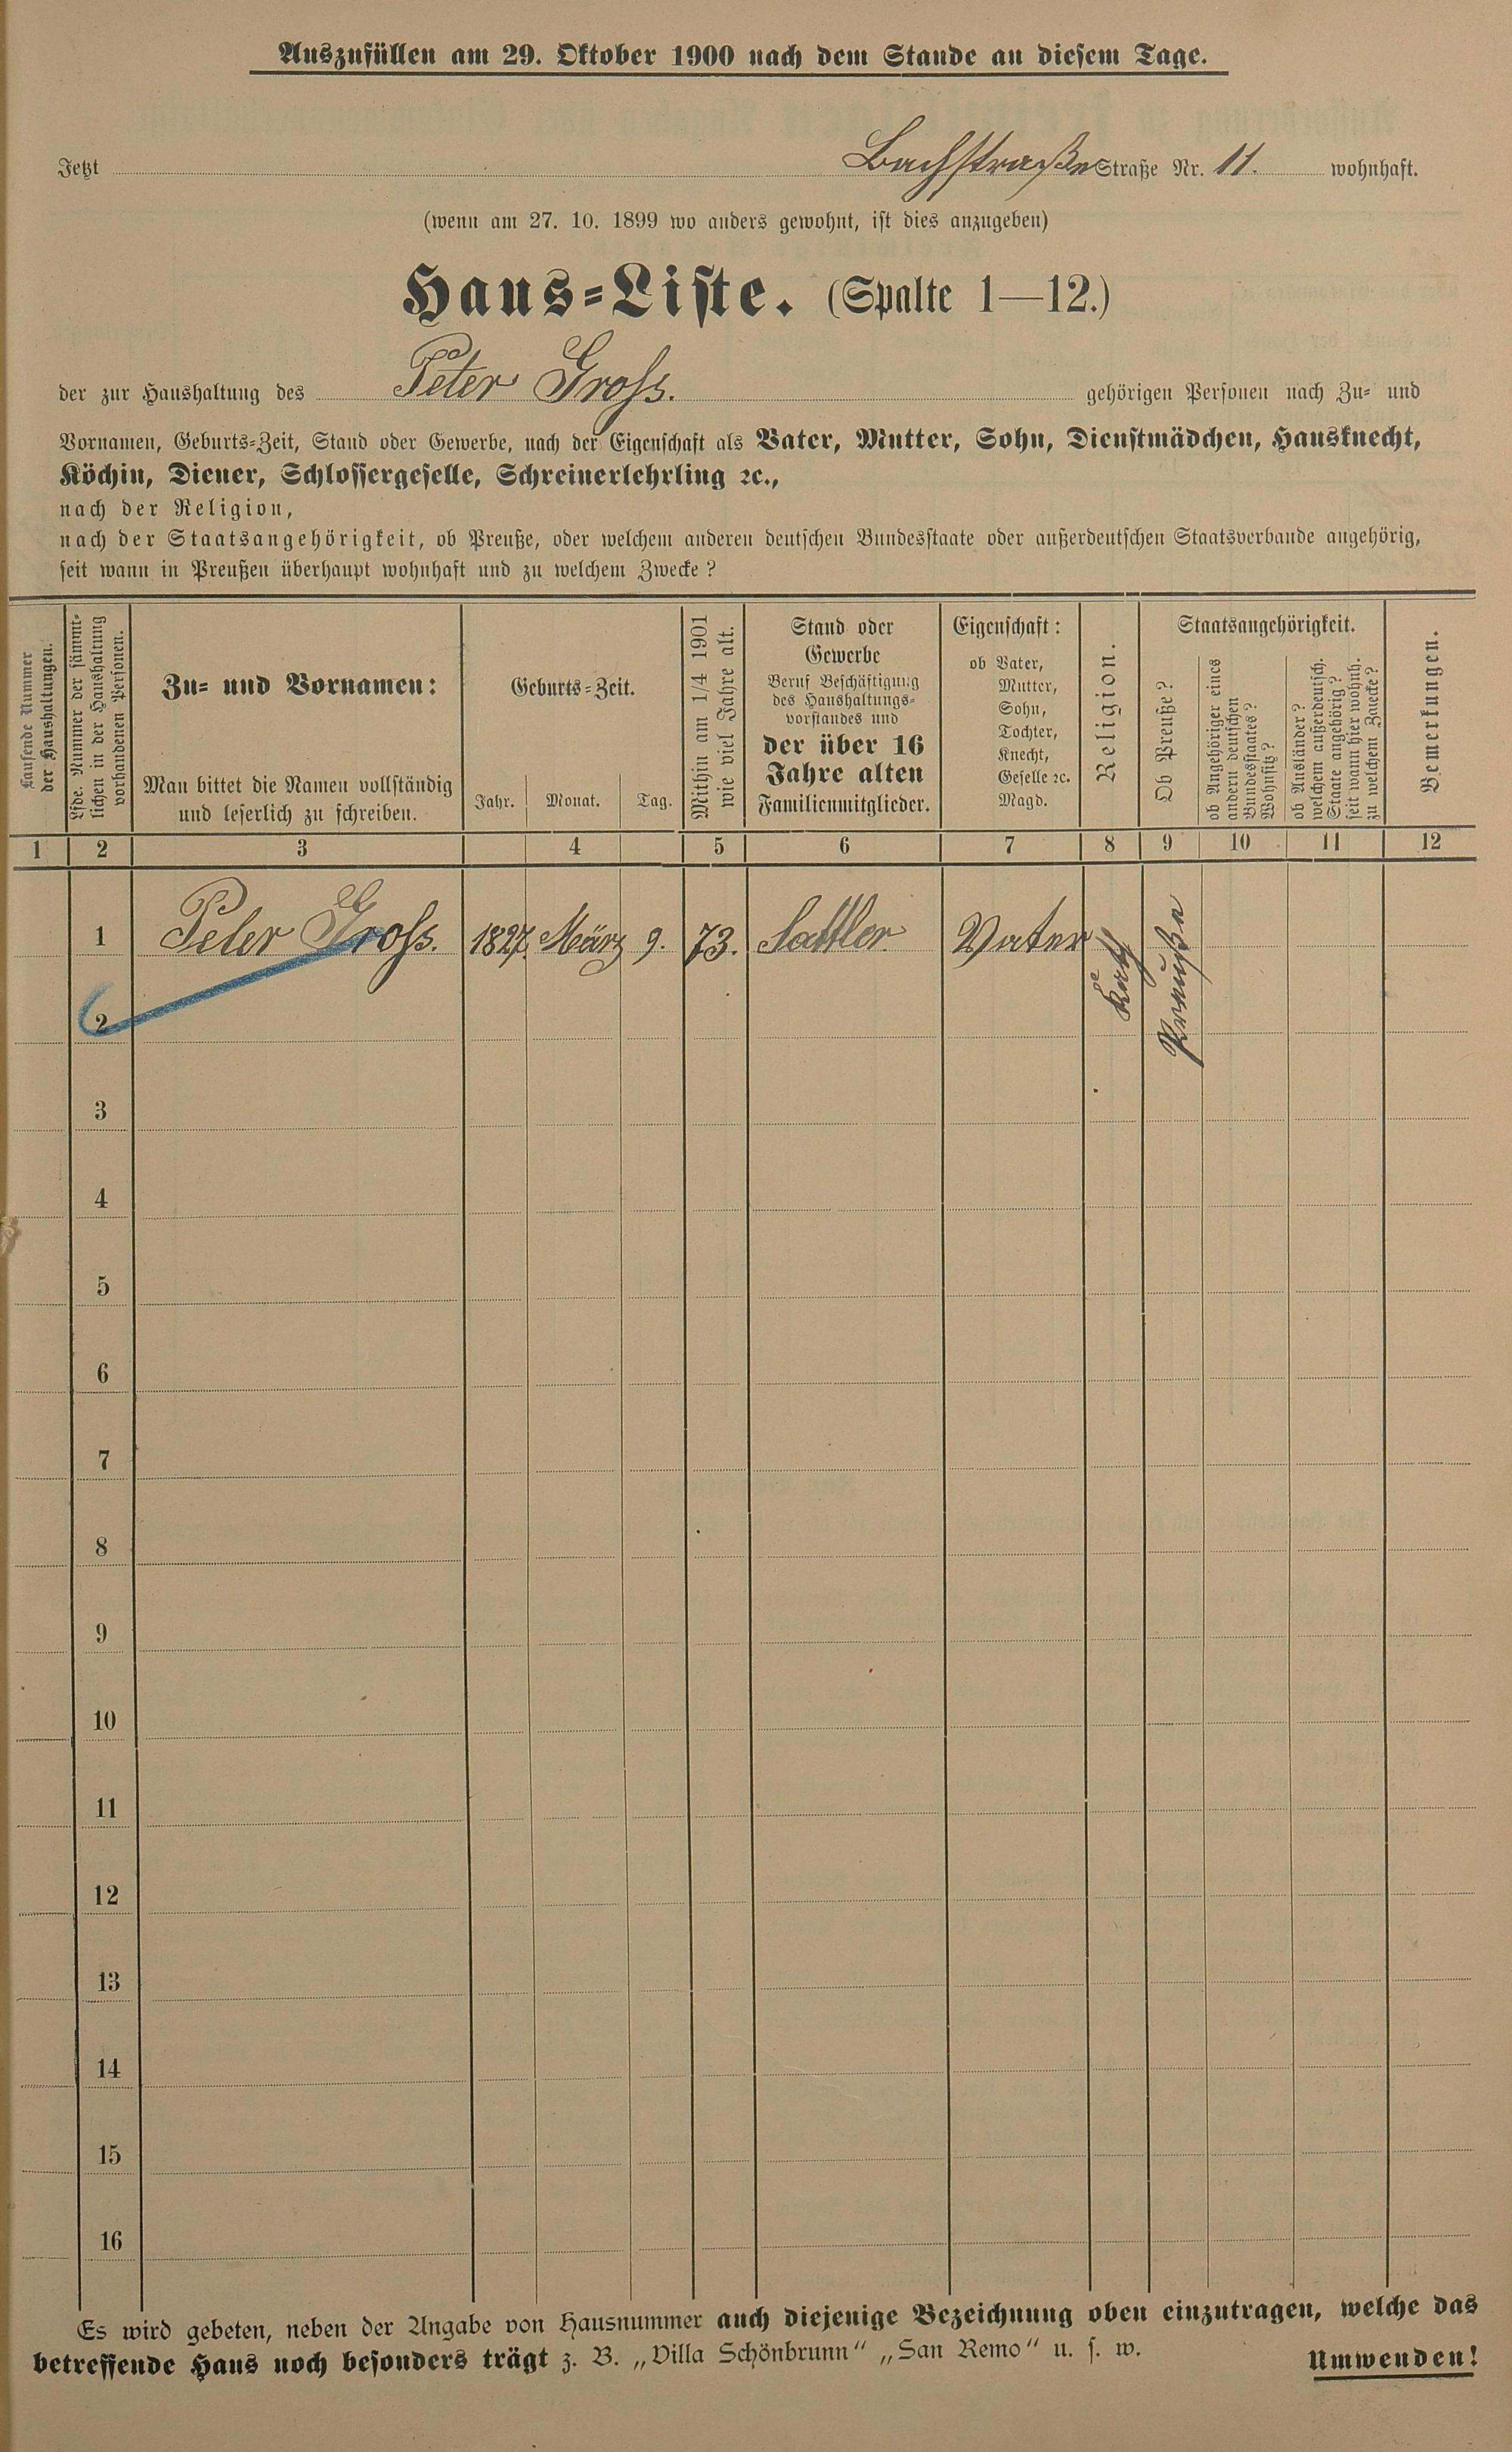 Auszufüllen am 29. Oktober 1900 nach dem Stande an diesem Tage.
Jetzt Bachstraße Straße Nr. 11. wohnhaft.
(wenn am 27. 10. 1899 wo anders gewohnt, ist dies anzugeben)
Haus-Liste. (Spalte 1—12.)
der zur Haushaltung des Peter Gross. gehörigen Personen nach Zu- und
Vornamen, Geburts-Zeit, Stand oder Gewerbe, nach der Eigenschaft als Vater, Mutter, Sohn, Dienstmädchen, Hausknecht,
Köchin, Diener, Schlossergeselle, Schreinerlehrling ꝛc.,
nach der Religion,
nach der Staatsangehörigkeit, ob Preuße, oder welchem anderen deutschen Bundesstaate oder außerdeutschen Staatsverbande angehörig,
seit wann in Preußen überhaupt wohnhaft und zu welchem Zwecke?
Laufende Nummer
der Haushaltungen.
Lfde. Nummer der sämmt-
lichen in der Haushaltung
vorhandenen Personen.
Zu- und Vornamen:
Man bittet die Namen vollständig
und leserlich zu schreiben.
Geburts-Zeit.
Jahr. Monat. Tag.
Mithin am 1/4 1901
wie viel Jahre alt.
Stand oder
Gewerbe
Beruf Beschäftigung
des Haushaltungs-
vorstandes und
der über 16
Jahre alten
Familienmitglieder.
Eigenschaft:
ob Vater,
Mutter,
Sohn,
Tochter,
Knecht,
Geselle ꝛc.
Magd.
Religion.
Staatsangehörigkeit.
Ob Preuße?
ob Angehöriger eines
andern deutschen
Bundesstaates?
Wohnsitz?
ob Ausländer?
welchem außerdeutsch.
Staate angehörig?
seit wann hier wohnh.
zu welchem Zwecke?
Bemerkungen.
1 2 3 4 5 6 7 8 9 10 11 12
1 Peter Gross. 1827. März 9. 73. Sattler Vater Kath Preuße
2
3
4
5
6
7
8
9
10
11
12
13
14
15
16
Es wird gebeten, neben der Angabe von Hausnummer auch diejenige Bezeichnung oben einzutragen, welche das
betreffende Haus noch besonders trägt z. B. „Villa Schönbrunn“ „San Remo“ u. s. w.
Umwenden!